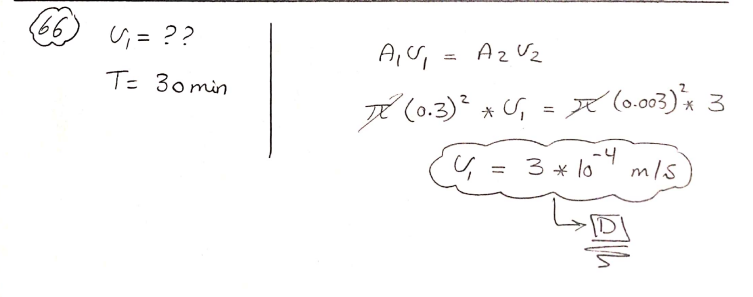 66 υ₁ = ??
T = 30 min
A₁ υ₁ = A₂ υ₂
π (0.3)² * υ₁ = π (0.003)² * 3
υ₁ = 3 * 10⁻⁴ m/s
D